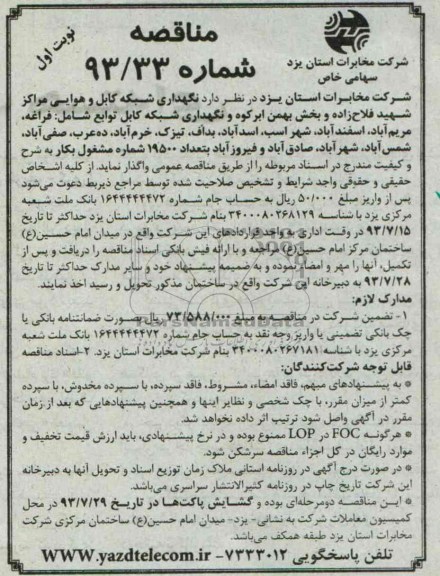 مناقصه
شماره ۹۳/۳۳
نوبت اول
شرکت مخابرات استان یزد
سهامی خاص
شرکت مخابرات استان یزد در نظر دارد نگهداری شبکه کابل و هوایی مراکز
شهید فلاح‌زاده و بخش بهمن ابرکوه و نگهداری شبکه کابل توابع شامل: فراغه،
مریم‌آباد، اسفندآباد، شهر اسب، اسدآباد، بداف، تیزک، خرم‌آباد، ده‌عرب، صفی‌آباد،
شمس‌آباد، شهرآباد، صادق‌آباد و فیروزآباد بتعداد ۱۹۵۰۰ شماره مشغول بکار به شرح
و کیفیت مندرج در اسناد مربوطه را از طریق مناقصه عمومی واگذار نماید. از کلیه اشخاص
حقیقی و حقوقی واجد شرایط و تشخیص صلاحیت شده توسط مراجع ذیربط دعوت می‌شود
پس از واریز مبلغ ۵۰/۰۰۰ ریال به حساب جام شماره ۱۶۴۴۴۴۴۴۷۲ بانک ملت شعبه
مرکزی یزد با شناسه ۳۴۰۰۰۸۰۲۶۸۱۲۹ بنام شرکت مخابرات استان یزد حداکثر تا تاریخ
۹۳/۷/۱۵ در وقت اداری به واحد قراردادهای این شرکت واقع در میدان امام حسین(ع)
ساختمان مرکز امام حسین(ع) مراجعه و با ارائه فیش بانکی اسناد مناقصه را دریافت و پس از
تکمیل، آنها را مهر و امضاء نموده و به ضمیمه پیشنهاد خود و سایر مدارک حداکثر تا تاریخ
۹۳/۷/۲۸ به دبیرخانه این شرکت واقع در ساختمان مذکور تحویل و رسید اخذ نمایند.
مدارک لازم:
۱- تضمین شرکت در مناقصه به مبلغ ۷۳/۵۸۸/۰۰۰ ریال بصورت ضمانتنامه بانکی یا
چک بانکی تضمینی یا واریز وجه نقد به حساب جام شماره ۱۶۴۴۴۴۴۴۷۲ بانک ملت شعبه
مرکزی یزد با شناسه ۳۴۰۰۰۸۰۲۶۷۱۸۱ بنام شرکت مخابرات استان یزد. ۲-اسناد مناقصه
قابل توجه شرکت‌کنندگان:
* به پیشنهادهای مبهم، فاقد امضاء، مشروط، فاقد سپرده، با سپرده مخدوش، با سپرده
کمتر از میزان مقرر، با چک شخصی و نظایر اینها و همچنین پیشنهادهایی که بعد از زمان
مقرر در آگهی واصل شود ترتیب اثر داده نخواهد شد.
* هرگونه FOC در LOP ممنوع بوده و در نرخ پیشنهادی، باید ارزش قیمت تخفیف و
موارد رایگان در کل اجزاء مناقصه سرشکن شود.
* در صورت درج آگهی در روزنامه استانی ملاک زمان توزیع اسناد و تحویل آنها به دبیرخانه
این شرکت تاریخ چاپ در روزنامه کثیرالانتشار سراسری می‌باشد.
* این مناقصه دومرحله‌ای بوده و گشایش پاکت‌ها در تاریخ ۹۳/۷/۲۹ در محل
کمیسیون معاملات شرکت به نشانی- یزد- میدان امام حسین(ع) ساختمان مرکزی شرکت
مخابرات استان یزد طبقه همکف می‌باشد.
تلفن پاسخگویی ۷۳۳۳۰۱۲- WWW.yazdtelecom.ir